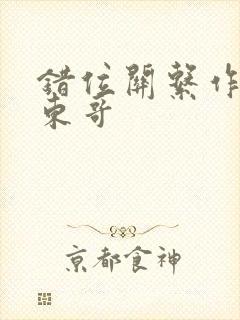 錯位關繫作
東哥
京都食神